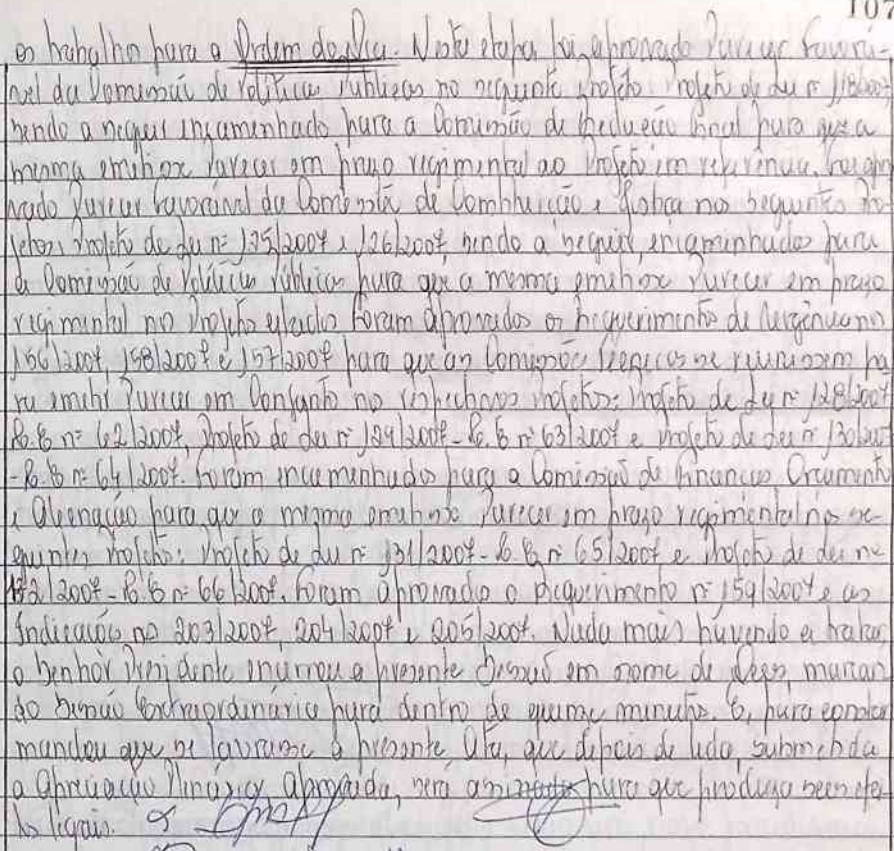 107
os trabalhos para a Ordem do Dia. Nesta etapa foi aprovado Parecer Favorá-
vel da Comissão de Políticas Públicas no seguinte Projeto: Projeto de Lei nº 118/2007
sendo a seguir encaminhado para a Comissão de Redação Final para que a
mesma emitisse Parecer em prazo regimental ao Projeto em referência. Foi apro
vado Parecer Favorável da Comissão de Constituição e Justiça nos seguintes Pro
jetos: Projeto de Lei nº 125/2007 e 126/2007, sendo a seguir, encaminhados para
a Comissão de Políticas Públicas para que a mesma emitisse Parecer em prazo
regimental nos Projetos citados. Foram aprovados os Requerimentos de Urgência nos
156/2007, 158/2007 e 157/2007 para que as Comissões Técnicas se reunissem pa
ra emitir Parecer em Conjunto nos respectivos Projetos: Projeto de Lei nº 128/2007
P.E nº 62/2007, Projeto de Lei nº 129/2007 - P.E nº 63/2007 e Projeto de Lei nº 130/2007
- P.E nº 64/2007. Foram encaminhados para a Comissão de Finanças Orçamento
e Alienação para que a mesma emitisse Parecer em prazo regimental nos se-
guintes Projetos: Projeto de Lei nº 131/2007 - P.E nº 65/2007 e Projeto de Lei nº
132/2007 - P.E nº 66/2007. Foram aprovados o Requerimento nº 159/2007 e as
Indicações nº 203/2007, 204/2007 e 205/2007. Nada mais havendo a tratar
o Senhor Presidente encerrou a presente Sessão em nome de Deus, marcan
do Sessão Extraordinária para dentro de quinze minutos. E, para constar
mandou que se lavrasse a presente Ata, que depois de lida, submetida
a apreciação Plenária, aprovada, será assinada para que produza seus efei
tos legais.